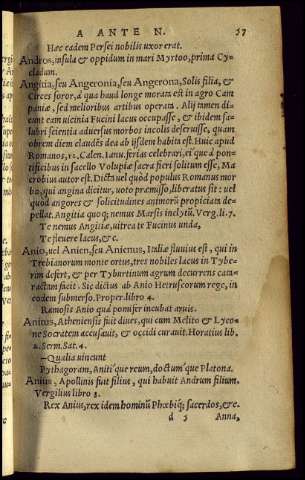 A ANTE N. 57
Hæc eadem Persei nobilis uxor erat.
Andros, insula & oppidum in mari Myrtoo, prima Cy-
cladum.
Angitia, seu Angeronia, seu Angerona, Solis filia, &
Circes soror, à qua haud longe moram est in agro Cam
paniæ, sed melioribus artibus operam. Alij tamen di-
cunt eam uicinia Fucini lacus occupasse, & ibidem sa-
lubri scientia aduersus morbos incolis deseruisse, quam
obrem diem claudẽs dea ab ijsdem habita est. Huic apud
Romanos, 12. Calen. Ianu. feriæ celebrari, ei que à pon-
tificibus in sacello Volupiæ sacra fieri solitum esse, Ma
crobius autor est. Dict. uel quòd populus Romanus mor
bo, qui angina dicitur, uoto præmisso, liberatus sit: uel
quòd angores & solicitudines animorũ propiciata de-
pellat. Angitia quoq; nemus Marsis inclytũ. Verg. li. 7.
Te nemus Angitiæ, uitrea te Fucinus unda,
Te fleuere lacus, &c.
Anio, uel Anien, seu Anienus, Italiæ fluuius est, qui in
Trebianorum monte ortus, tres nobiles lacus in Tybe-
rim defert, & per Tyburtinum agrum decurrens cata-
ractum facit. Sic dictus ab Anio Hetruscorum rege, in
eodem submerso. Proper. libro 4.
Ramosis Anio quà pomifer incubat aruis.
Anitus, Atheniensis fuit diues, qui cum Melito & Lyco-
ne Socratem accusauit, & occidi curauit. Horatius lib.
2. Serm. Sat. 4.
—Qualia uincunt
Pythagoram, Aniti que reum, doctum que Platona.
Anius, Apollinis fuit filius, qui habuit Andrum filium.
Vergilius libro 3.
Rex Anius, rex idem hominũ Phœbiq; sacerdos, &c.
d 5 Anna,